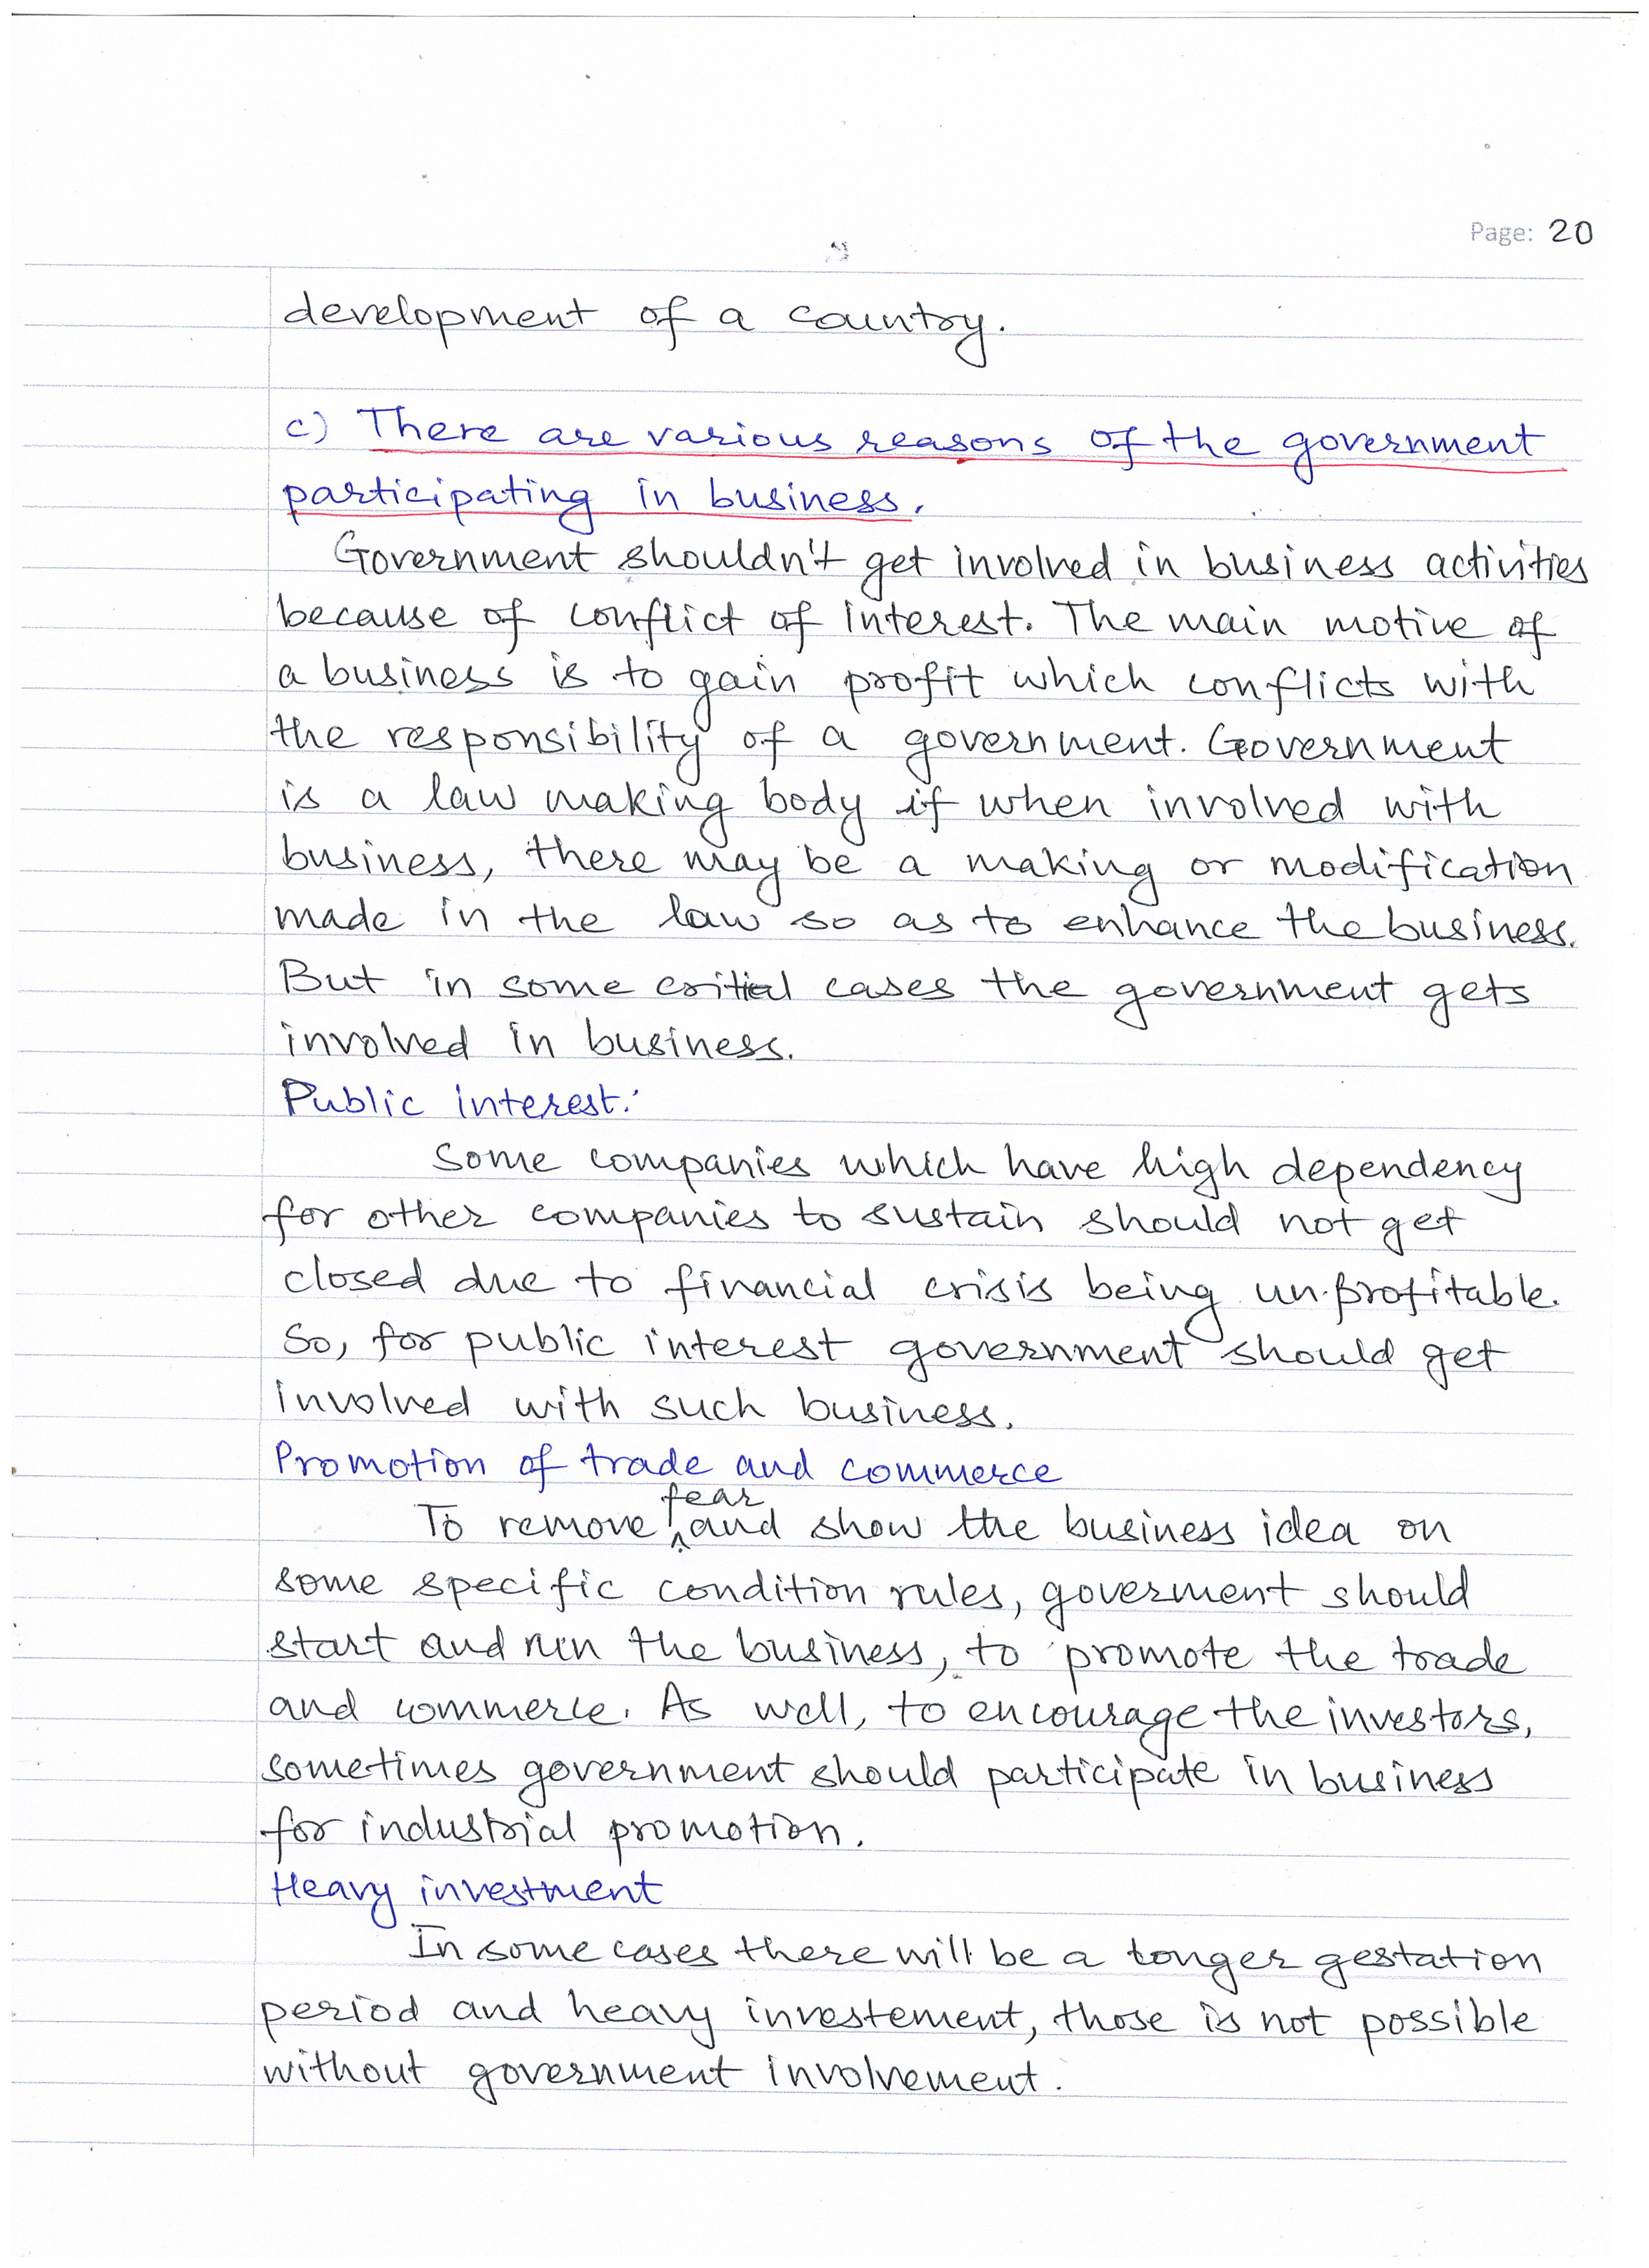 Page: 20
development of a country.
c) There are various reasons of the government
participating in business.
Government shouldn't get involved in business activities
because of conflict of interest. The main motive of
a business is to gain profit which conflicts with
the responsibility of a government. Government
is a law making body if when involved with
business, there may be a making or modification
made in the law so as to enhance the business.
But in some critical cases the government gets
involved in business.
Public interest:
Some companies which have high dependency
for other companies to sustain should not get
closed due to financial crisis being unprofitable.
So, for public interest government should get
involved with such business.
Promotion of trade and commerce
To remove fear and show the business idea on
some specific condition rules, goverment should
start and run the business, to promote the trade
and commerce. As well, to encourage the investors,
sometimes government should participate in business
for industrial promotion.
Heavy investment
In some cases there will be a longer gestation
period and heavy investement, those is not possible
without government involvement.